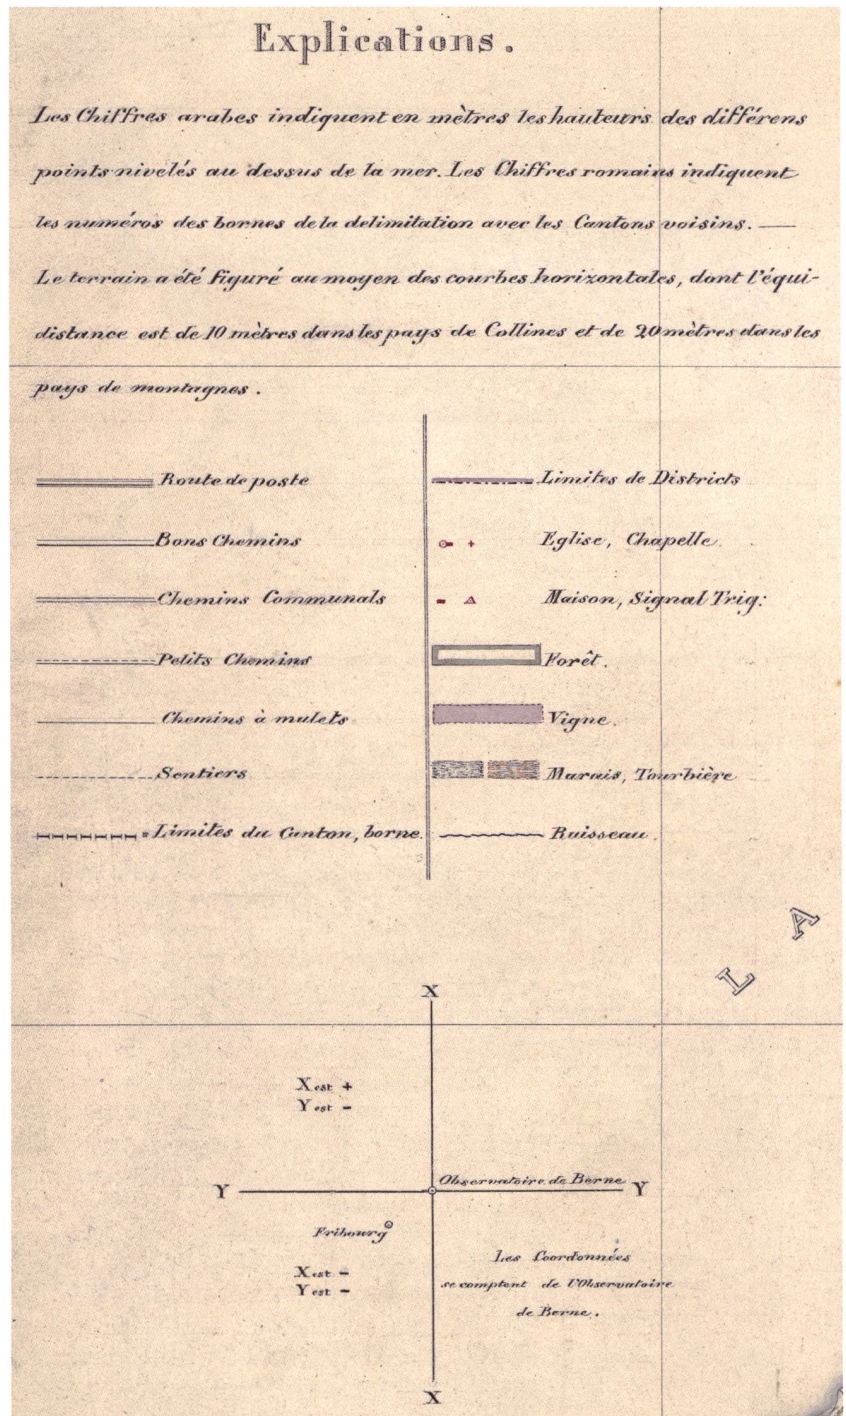 Explications.
Les Chiffres arabes indiquent en mètres les hauteurs des différens
points nivelés au dessus de la mer. Les Chiffres romains indiquent
les numéros des bornes de la delimitation avec les Cantons voisins. —
Le terrain a été figuré au moyen des courbes horizontales, dont l'équi-
distance est de 10 mètres dans les pays de Collines et de 20 mètres dans les
pays de montagnes.
Route de poste
Bons Chemins
Chemins Communals
Petits Chemins
Chemins à mulets
Sentiers
Limites du Canton, borne.
Limites de Districts
Eglise, Chapelle.
Maison, Signal Trig:
Forêt.
Vigne.
Marais, Tourbière
Ruisseau.
L A
X
X est +
Y est -
Y
Observatoire de Berne
Y
Fribourg
X est -
Y est -
Les Coordonnées
se comptent de l'Observatoire
de Berne.
X